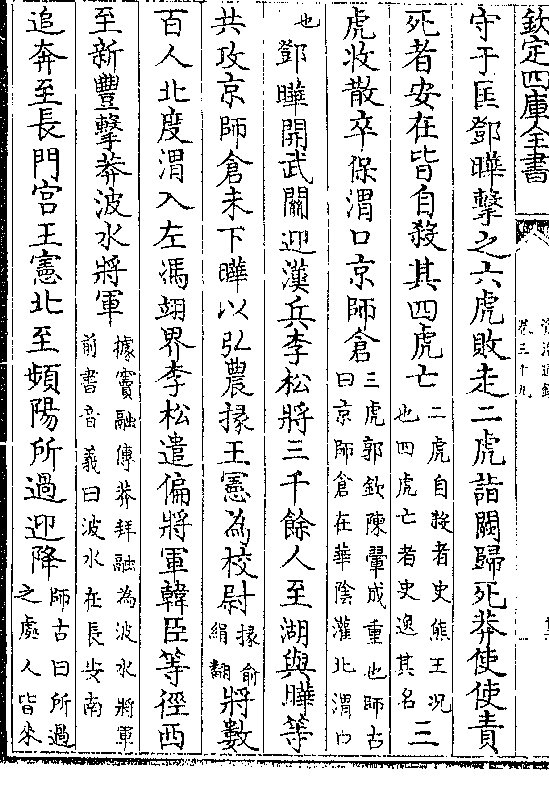 欽定四庫全書
資治通鑑
卷三十九
守于匡鄧曄擊之六虎敗走二虎詣闕歸死莽使使責
死者安在皆自殺其四虎亡二虎自殺者史熊王况也四虎亡者史逸其名三
虎收散卒保渭口京師倉三虎郭欽陳翬成重也師古曰京師倉在華陰灌北渭口
也鄧曄開武關迎漢兵李松將三千餘人至湖與曄等
共攻京師倉未下曄以弘農掾王憲為校尉掾俞絹翻將數
百人北度渭入左馮翊界李松遣偏將軍韓臣等徑西
至新豐擊莽波水將軍據竇融傳莽拜融為波水將軍前書音義曰波水在長安南
追奔至長門宮王憲北至頻陽所過迎降師古曰所過之處人皆來